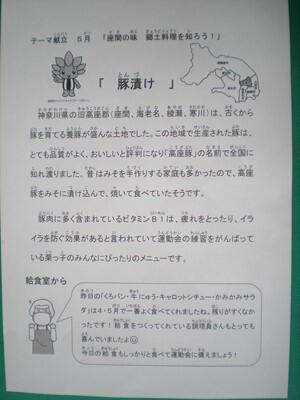 テーマ献立 5月 「座間の味 郷土料理を知ろう！」
「 豚漬け 」
神奈川県の旧高座郡（座間、海老名、綾瀬、寒川）は、古くから
豚を育てる養豚が盛んな土地でした。この地域で生産された豚は、
とても品質がよく、おいしいと評判になり「高座豚」の名前で全国に
知れ渡りました。昔はみそを手作りする家庭も多かったので、高座
豚をみそに漬け込んで、焼いて食べていたそうです。
豚肉に多く含まれているビタミンB1は、疲れをとったり、イラ
イラを防ぐ効果があると言われていて運動会の練習をがんばって
いる栗っ子のみんなにぴったりのメニューです。
給食室から
昨日の「くろパン・牛にゅう・キャロットシチュー・かみかみサラ
ダ」は4・5月で一番よく食べてくれましたね。残りがすくな
かったです！給食をつくってくれている調理員さんもとっても
喜んでいましたよ☺
今日の給食もしっかりと食べて運動会に備えましょう！